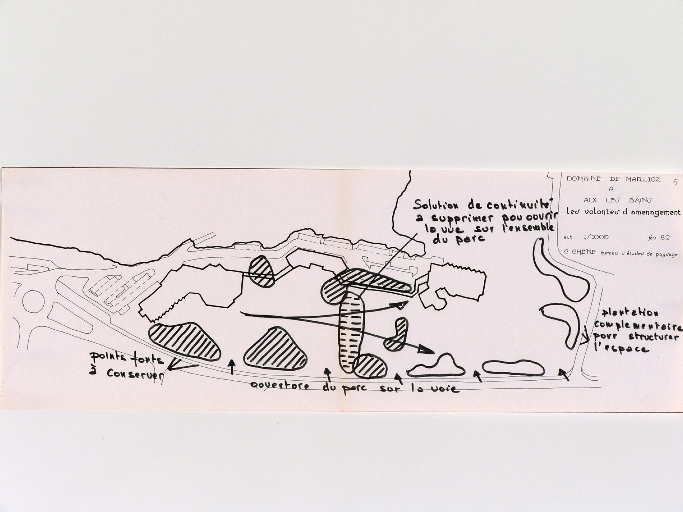 DOMAINE DE MARLIOZ 5
A
AIX LES BAINS
Les volontés d'aménagement
ech 1/2000 fév 82
G CHENE bureau d'études de paysage
Solution de continuité
a supprimer pou ouvrir
la vue sur l'ensemble
du parc
plantation
complementaire
pour structurer
l'espace
points forts
à conserver
ouverture du parc sur la voie